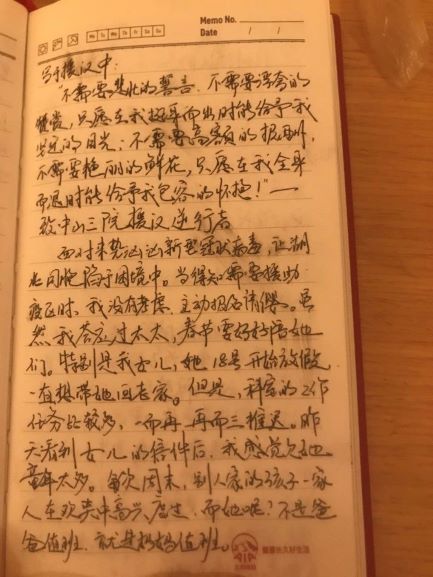 Memo No.
Mo Tu We Th Fr Sa Su
Date / /
写于援汉中:
"不需要悲壮的誓言,不需要浮夸的
赞赏,只愿在我挺身而出时能给予我
坚定的目光;不需要高额的报酬,
不需要艳丽的鲜花,只愿在我全身
而退时能给予我包容的怀抱!"——
致中山三院援汉逆行者
面对来势汹汹新型冠状病毒,让湖
北同胞陷于困境中。当得知需要援助
疫区时,我没有考虑,主动报名请缨。虽
然我答应过太太,春节要好好陪她
们。特别是我女儿,她18号开始放假
一直想带她回老家。但是,科室的工作
任务比较多,一而再再而三推迟。昨
天看到女儿的信件后,我感觉欠她
童年太多。每次周末,别人家的孩子一家
人在欢笑中高兴度过,而她呢?不是爸
爸值班,就是妈妈值班。
AIA
健康长久好生活